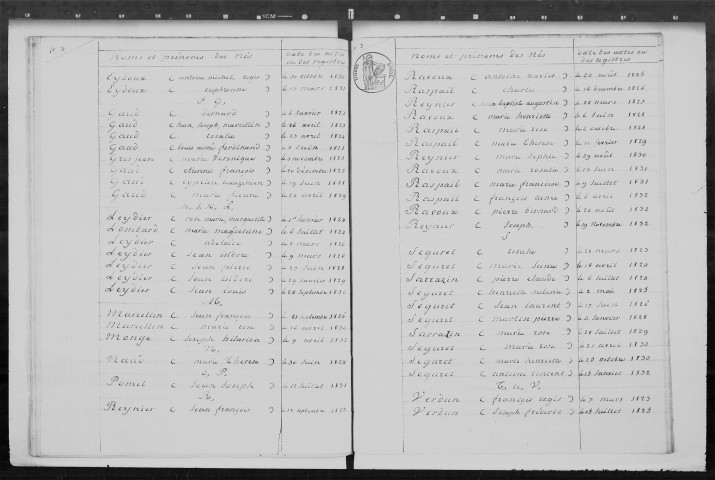 Noms et prénoms des Nés
Date des actes ou des registres
Eydoux ( antoine michel regis ) le 30 octobre 1830
Eydoux ( euphrosine ) mars 1831
F G.
Gaud ( bernard ) le 6 janvier 1823
Gaud ( jean joseph marcellin ) le 26 avril 1823
Gaud ( rosalie ) le 23 avril 1824
Gaud ( louis aimé ferdinand ) le 2 juin 1825
Grosjean ( marie veronique ) novembre 1825
Gaud ( etienne françois ) le 20 décembre 1825
Gaud ( cyprien ) le 19 juin 1828
Gaud ( marie ) avril 1829
L.
Leydier ( rose marie marguerite ) le 1er janvier 1824
Lombard ( marie magdeleine ) le 6 juillet 1825
Leydier ( adelaide ) mars 1826
Leydier ( jean isidore ) le 9 mars 1826
Leydier ( jean pierre ) le 27 juin 1828
Leydier ( jean isidore ) le 29 janvier 1829
Leydier ( jean louis ) le 28 septembre 1830
M.
Marcellin ( jean françois ) 1826
Marcellin ( marie rose ) le 16 avril 1830
Monge ( joseph hilarion ) le 9 avril 1832
N.
Naud ( marie therese ) le 30 juin 1824
O. P.
Ponnet ( jean joseph ) le 12 juillet 1831
R.
Reynier ( jean françois ) le 12 septembre
Noms et prénoms des Nés
Date des actes ou des registres
Ravoux ( antoine xavier ) août 1825
Raspail ( charles ) le 16 decembre 1826
Reynier ( jean baptiste augustin ) mars 1828
Ravoux ( marie henriette ) le 6 juin 1828
Raspail ( marie rose ) octobre 1828
Raspail ( marie therese ) fevrier 1829
Reynier ( marie sophie ) le 29 août 1830
Ravoux ( marie rosalie ) juin 1831
Raspail ( marie francoise ) le 7 juillet 1831
Raspail ( françois ) le 6 avril 1832
Ravoux ( pierre bernard ) le 22 août 1832
Reynier ( joseph ) le 29 novembre 1832
S
Séguret ( rosalie ) mars 1823
Séguret ( marie ) le 18 avril 1824
Sarrazin ( pierre claude ) le 6 juillet 1824
Séguret ( henriette melanie ) mai 1825
Séguret ( jean laurent ) le 17 juin 1826
Séguret ( martin pierre ) janvier 1828
Sarrazin ( marie rose ) juillet 1829
Séguret ( marie rose ) avril 1830
Séguret ( marie henriette ) le 20 octobre 1830
Séguret ( antoine vincent ) le 15 janvier 1832
T. U. V.
Verdun ( françois regis ) le 7 mars 1823
Verdun ( joseph frederic ) le 18 juillet 1825